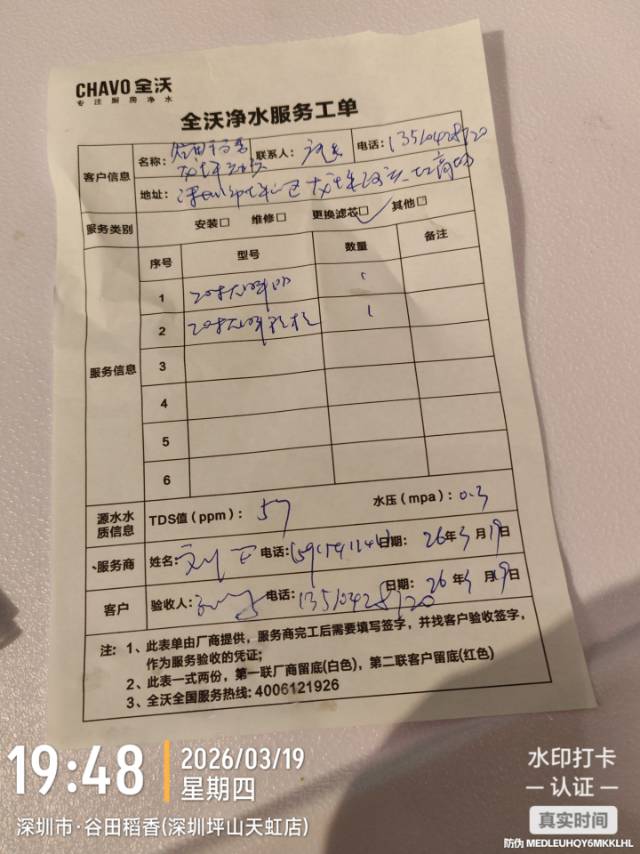 CHAVO 全沃
专注厨房净水
全沃净水服务工单
客户信息
名称: 谷田稻香
联系人:
电话: 13510428720
地址:
服务类别
安装□ 维修□ 更换滤芯☑ 其他□
服务信息
序号 型号 数量 备注
1 1
2 1
3
4
5
6
源水水质信息
TDS值(ppm): 57 水压(mpa): 0.3
服务商
姓名: 电话: 日期: 26年3月19日
客户
验收人: 电话: 13510428720 日期: 26年3月19日
注: 1、此表单由厂商提供，服务商完工后需要填写签字，并找客户验收签字，
作为服务验收的凭证;
2、此表一式两份，第一联厂商留底(白色)，第二联客户留底(红色)
3、全沃全国服务热线: 4006121926
19:48
2026/03/19
星期四
深圳市·谷田稻香(深圳坪山天虹店)
水印打卡
认证
真实时间
防伪 MEDLEUHQY6MKKLHL